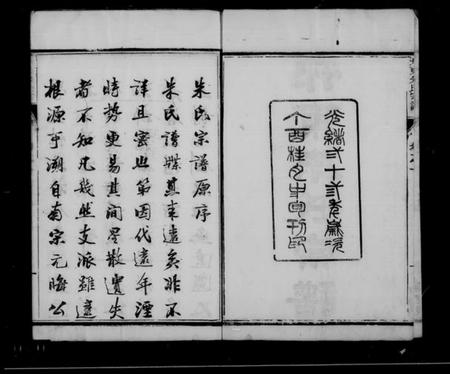 光緒二十二年歲次
丙酉桂月中旬刊印
朱氏宗譜原序
朱氏譜牒其來遠矣非不
詳且密也第因代遠年湮
時勢更易其間星散遺失
者不知凡幾然支派雖遠
根源可溯自南宗元晦公